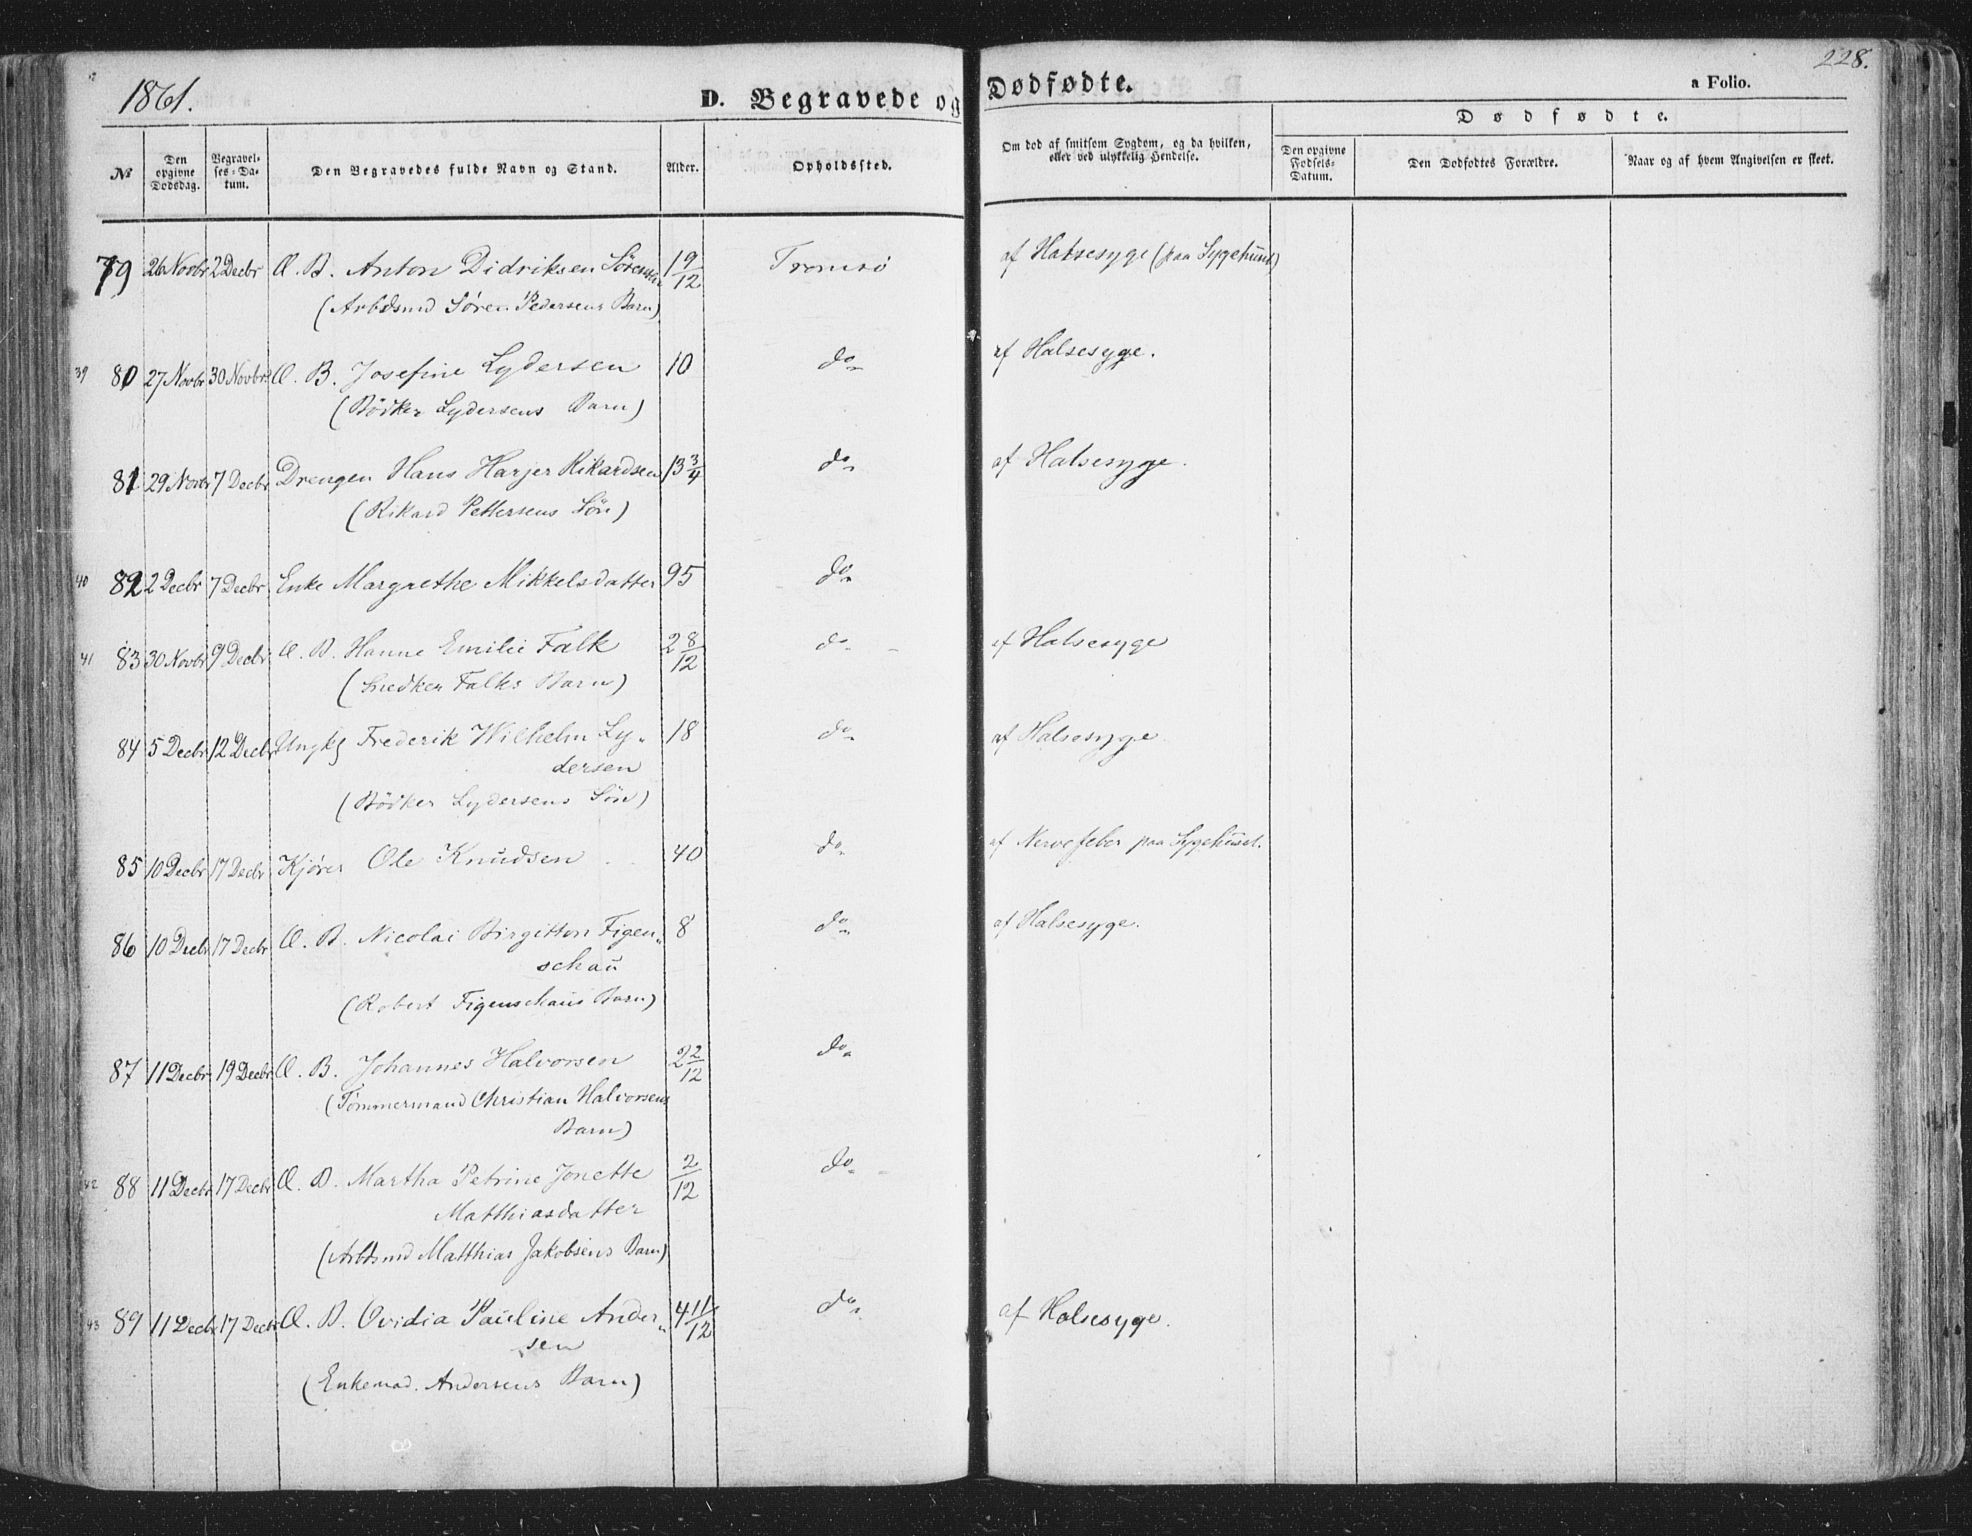 1861.
228.
D. Begravede og Dødfødte.
a Folio.
№
Den opgivne Dødsdag.
Begravelses-Datum.
Den Begravedes fulde Navn og Stand.
Alder.
Opholdssted.
Om død af smitsom Sygdom, og da hvilken, eller ved ulykkelig Hendelse.
Dødfødte.
Den opgivne Fødsels-Datum.
Den Dødfødtes Forældre.
Naar og af hvem Angivelsen er skeet.
79 26 Novbr 2 Decbr Æ. B. Anton Didriksen Sørensen 1 9/12 Tromsø af Halsesyge (paa Sygehuset)
(Arbdsmd Søren Pedersens Barn)
39 80 27 Novbr 30 Novbr Æ. B. Josefine Lydersen 10 do af Halsesyge.
(Bödker Lydersens Barn)
81 29 Novbr 7 Decbr Drengen Hans Harjer Rikardsen 13 3/4 do af Halsesyge.
(Rikard Pettersens Sön)
40 82 2 Decbr 7 Decbr Enke Margrethe Mikkelsdatter 95 do
41 83 30 Novbr 9 Decbr Æ. B. Hanne Emilie Falk 2 8/12 do af Halsesyge
(Snedker Falks Barn)
84 5 Decbr 12 Decbr Ungk Frederik Wilhelm Ly- 18 do af Halsesyge
dersen
(Bödker Lydersens Sön)
85 10 Decbr 17 Decbr Kjører Ole Knudsen 40 do af Nervefeber paa Sygehuset.
86 10 Decbr 17 Decbr Æ. B. Nicolai Birgitton Figen- 8 do af Halsesyge.
schau
(Robert Figenschaus Barn)
87 11 Decbr 19 Decbr Æ. B. Johannes Halvorsen 2 2/12 do
(Tömmermand Christian Halvorsens
Barn)
42 88 11 Decbr 17 Decbr Æ. B. Martha Petrine Jonette 2/12 do
Matthiasdatter
(Arbdsmd Matthias Jakobsens Barn)
43 89 11 Decbr 17 Decbr Æ. B. Ovidia Pauline Ander- 4 11/12 do af Halsesyge.
sen
(Enkemad. Andersens Barn)